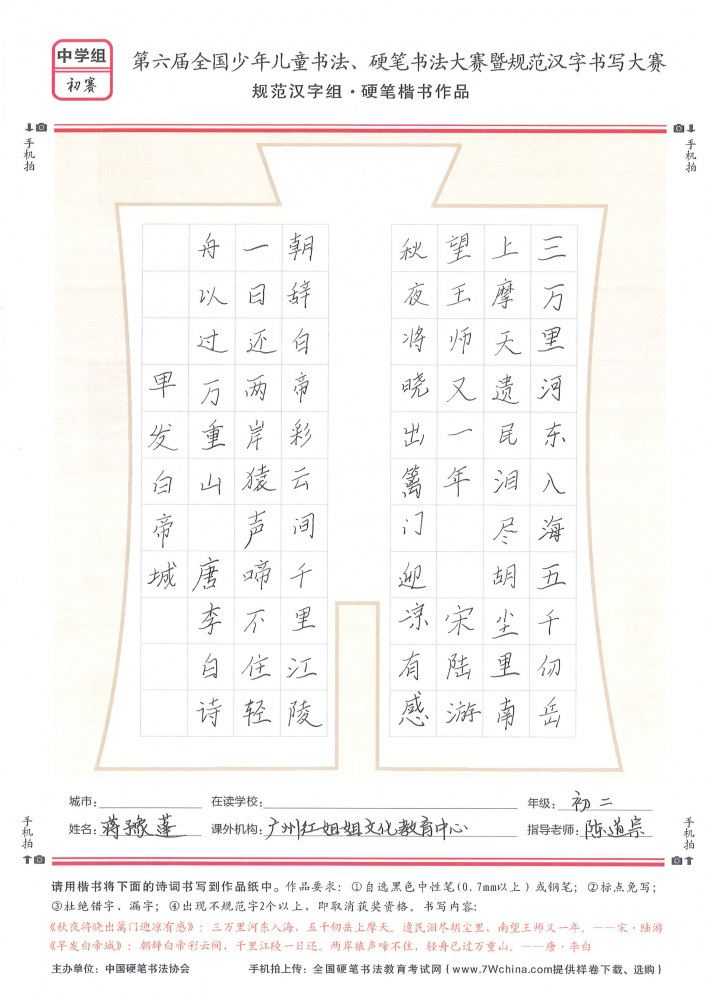 中学组
初赛
第六届全国少年儿童书法、硬笔书法大赛暨规范汉字书写大赛
规范汉字组·硬笔楷书作品
手机拍
手机拍
三万里河东入海五千仞岳
上摩天遗民泪尽胡尘里南
望王师又一年 宋陆游
秋夜将晓出篱门迎凉有感
朝辞白帝彩云间千里江陵
一日还两岸猿声啼不住轻
舟以过万重山 唐李白诗
早发白帝城
城市: 在读学校: 年级:初二
姓名:蒋豫蓬 课外机构:广州红姐姐文化教育中心 指导老师:陈道宗
手机拍
手机拍
请用楷书将下面的诗词书写到作品纸中。作品要求:①自选黑色中性笔(0.7mm以上)或钢笔;②标点免写;
③杜绝错字、漏字;④出现不规范字2个以上,即取消获奖资格。书写内容:
《秋夜将晓出篱门迎凉有感》:三万里河东入海,五千仞岳上摩天。遗民泪尽胡尘里,南望王师又一年。——宋·陆游
《早发白帝城》:朝辞白帝彩云间,千里江陵一日还。两岸猿声啼不住,轻舟已过万重山。——唐·李白
主办单位:中国硬笔书法协会 手机拍上传:全国硬笔书法教育考试网(www.7Wchina.com提供样卷下载、选购)